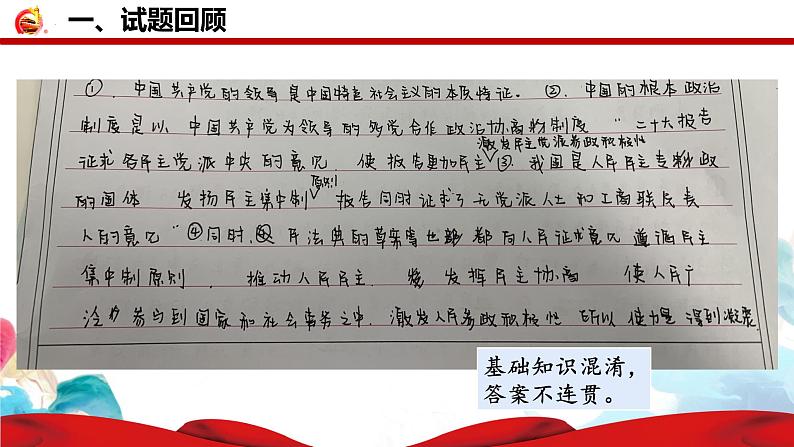 一、试题回顾
①. 中国共产党的领导是中国特色社会主义的本质特征。②. 中国的根本政治
制度是以中国共产党为领导的多党合作政治协商制度 “二十大报告
激发民主党派参政积极性
征求各民主党派中央的意见 使报告更加民主 ③ 我国是人民民主专政
的国体 发扬民主集中制 原则 报告同时征求了无党派人士和工商联代表
人的意见” ④同时, 民法典的草案等也 都向人民征求意见 遵循民主
集中制原则, 推动人民民主. 发挥民主协商 使人民广
泛 参与到国家和社会事务之中. 激发人民参政积极性 所以使力量得到凝聚.
基础知识混淆，
答案不连贯。